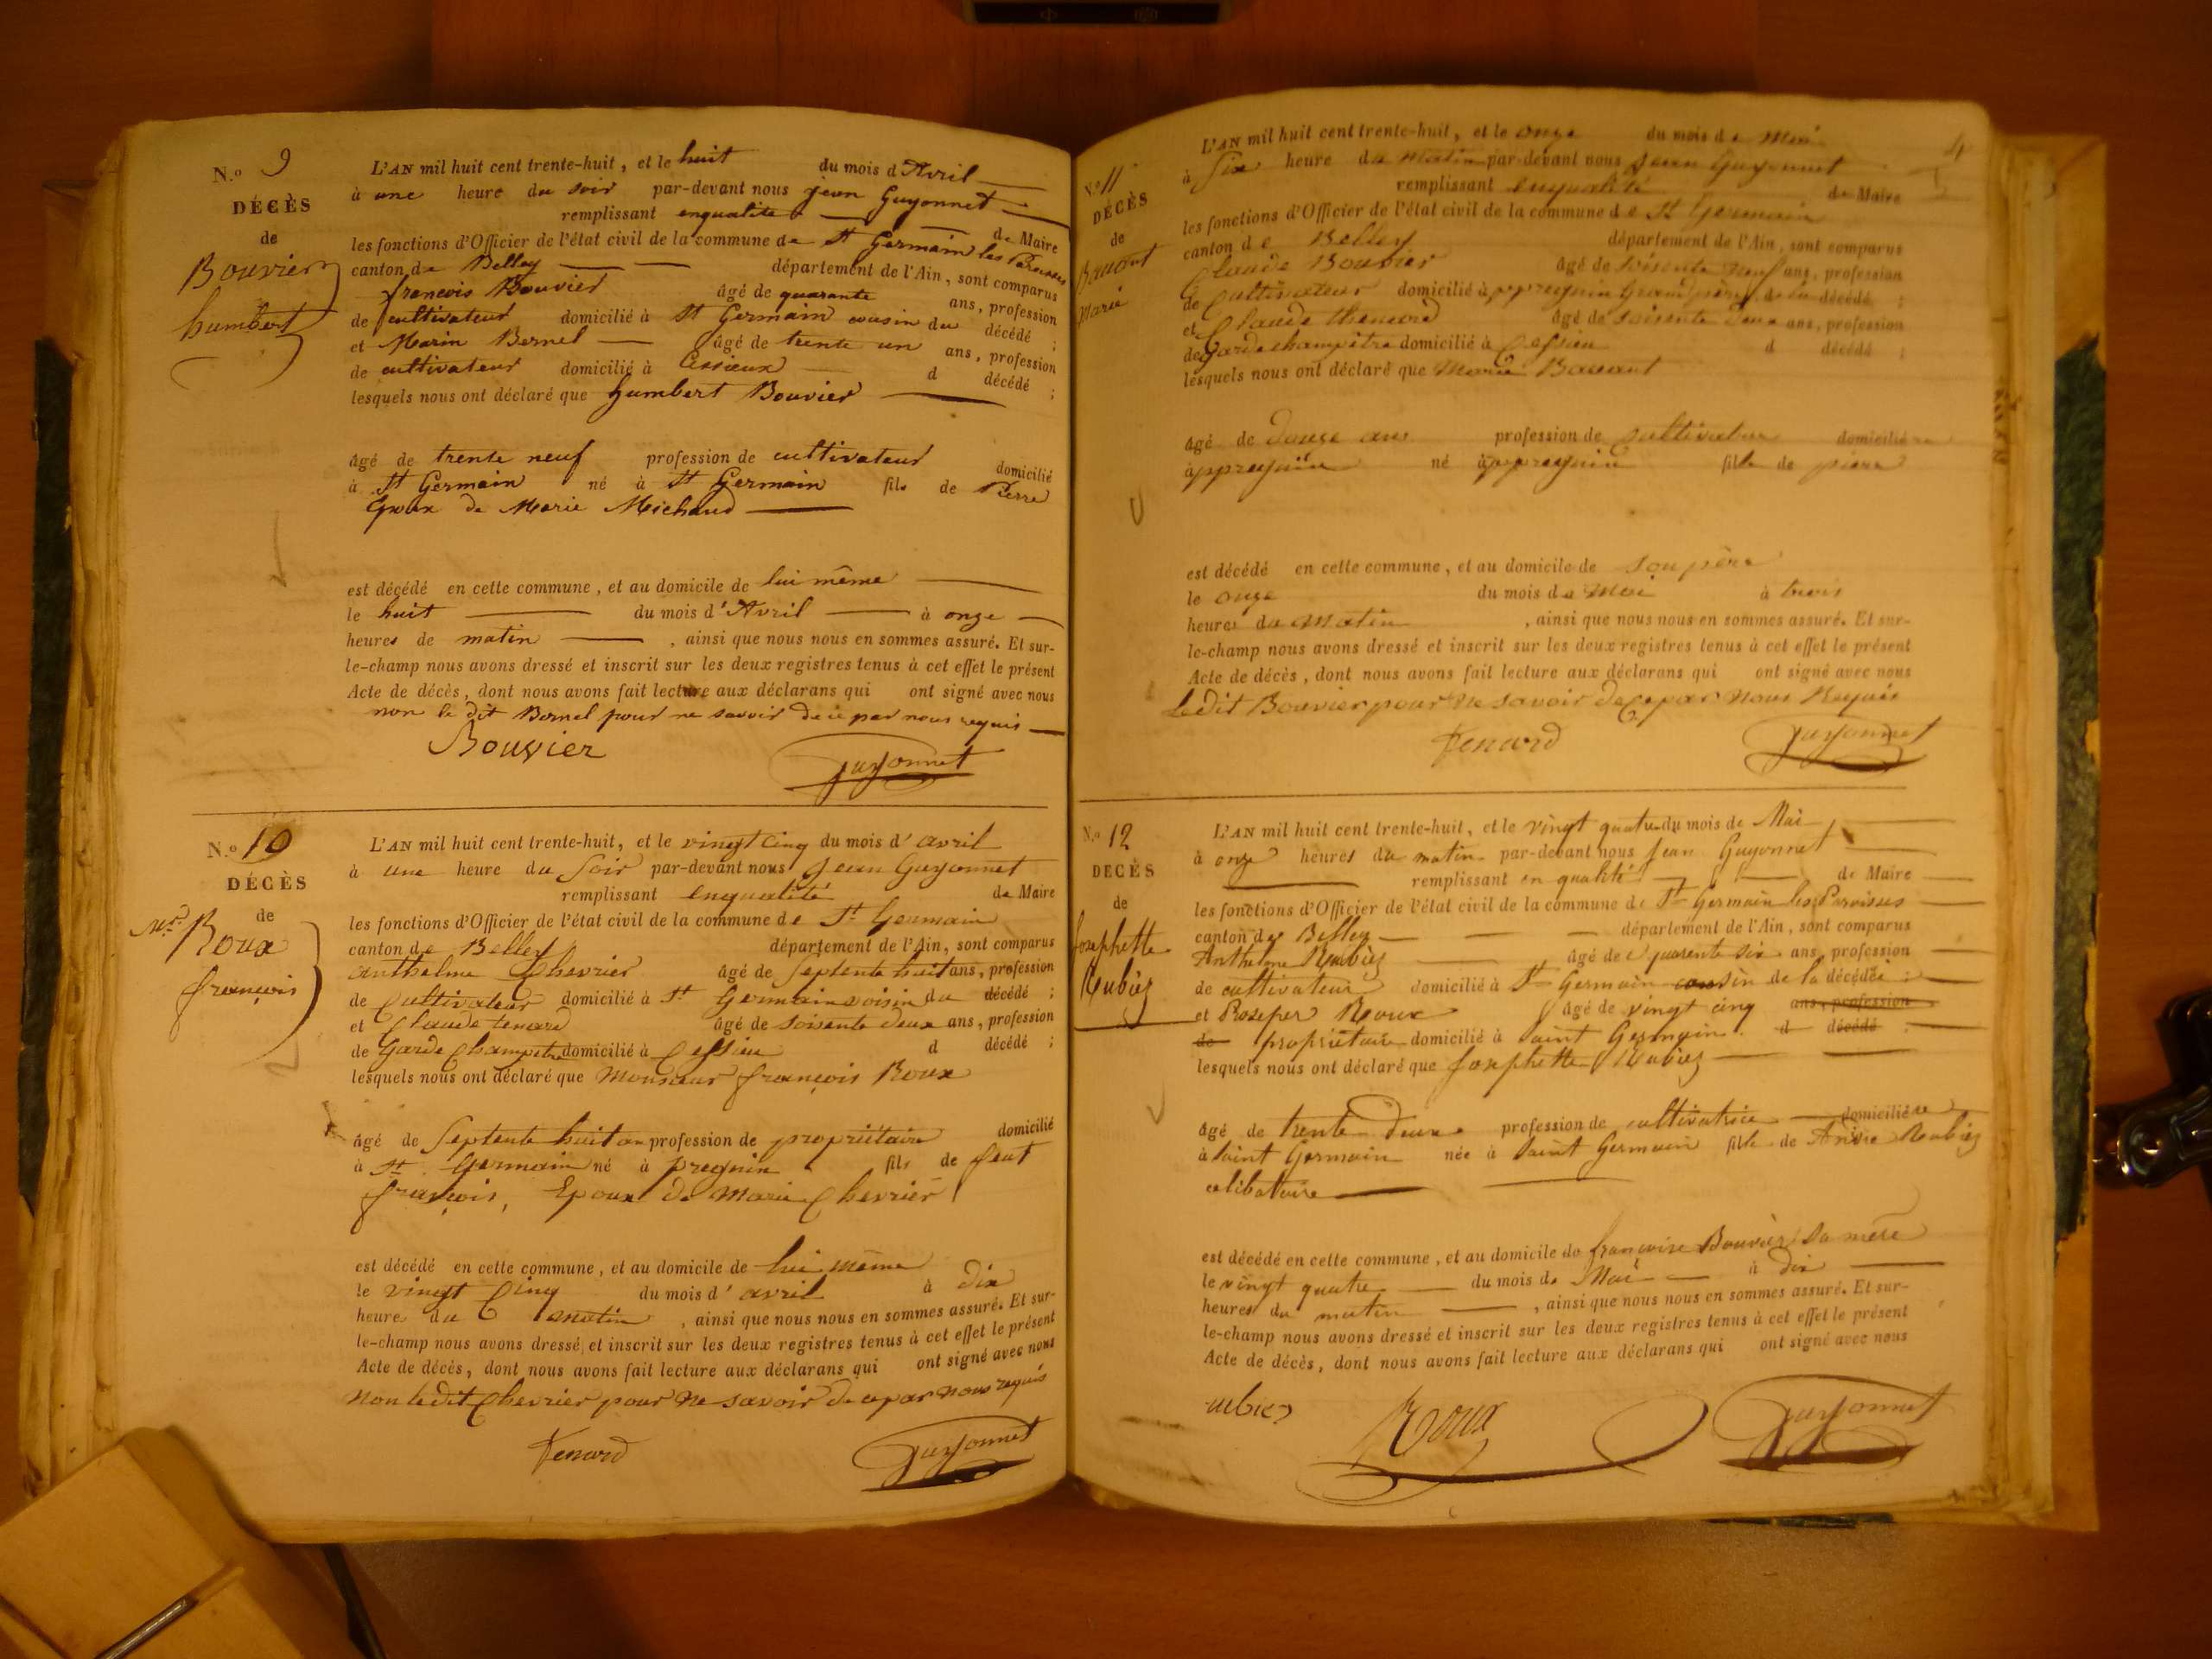 N.o 9
DÉCÈS
de
Bouvier
humbert
L'AN mil huit cent trente-huit, et le huit du mois d'Avril
à une heure du soir par-devant nous jean Guyonnet
remplissant enqualité de Maire
les fonctions d'Officier de l'état civil de la commune de St Germain les Paroisses
canton de Belley département de l'Ain, sont comparus
francois Bouvier âgé de quarante ans, profession
de cultivateur domicilié à St Germain cousin du décédé ;
et Marin Bernel âgé de trente un ans, profession
de cultivateur domicilié à Cessieux d décédé ;
lesquels nous ont déclaré que humbert Bouvier
âgé de trente neuf profession de cultivateur domicilié
à St Germain né à St Germain fils de Pierre
Epoux de Marie Michaud
est décédé en cette commune, et au domicile de lui même
le huit du mois d'Avril à onze
heures de matin , ainsi que nous nous en sommes assuré. Et sur-
le-champ nous avons dressé et inscrit sur les deux registres tenus à cet effet le présent
Acte de décès, dont nous avons fait lecture aux déclarans qui ont signé avec nous
non le dit Bernel pour ne savoir de ce par nous requis
Bouvier Guyonnet
N.o 10
DÉCÈS
de
Mr Roux
françois
L'AN mil huit cent trente-huit, et le vingt cinq du mois d'avril
à une heure du soir par-devant nous Jean Guyonnet
remplissant enqualité de Maire
les fonctions d'Officier de l'état civil de la commune de St Germain
canton de Belley département de l'Ain, sont comparus
anthelme Chevrier âgé de septente huit ans, profession
de Cultivateur domicilié à St Germain voisin du décédé ;
et Claude tenard âgé de soisente deux ans, profession
de Garde Champetre domicilié à Cessieu d décédé ;
lesquels nous ont déclaré que Monsieur françois Roux
âgé de septente huit an profession de propriétaire domicilié
à St Germain né à pregnin fils de feut
françois, Epoux de Marie Chevrier
est décédé en cette commune, et au domicile de lui même
le vingt Cinq du mois d'avril à dix
heure du matin , ainsi que nous nous en sommes assuré. Et sur-
le-champ nous avons dressé et inscrit sur les deux registres tenus à cet effet le présent
Acte de décès, dont nous avons fait lecture aux déclarans qui ont signé avec nous
Non ledit Chevrier pour ne savoir de ce par nous requis
tenard Guyonnet
4
N.o 11
DÉCÈS
de
Marie
L'AN mil huit cent trente-huit, et le onze du mois de Mai
à six heure du matin par-devant nous Jean Guyonnet
remplissant enqualité de Maire
les fonctions d'Officier de l'état civil de la commune de St Germain
canton de Belley département de l'Ain, sont comparus
Claude Bouvier âgé de soisente neuf ans, profession
de Cultivateur domicilié à Grand père de la décédé ;
et Claude thenard âgé de soisente deux ans, profession
de Garde champêtre domicilié à Cessieu d décédé ;
lesquels nous ont déclaré que Marie
âgé de douze ans profession de cultivateur domicilié
à né à fille de piere
est décédé en cette commune, et au domicile de son père
le onze du mois de Mai à trois
heures du matin , ainsi que nous nous en sommes assuré. Et sur-
le-champ nous avons dressé et inscrit sur les deux registres tenus à cet effet le présent
Acte de décès, dont nous avons fait lecture aux déclarans qui ont signé avec nous
Ledit Bouvier pour ne savoir de Ce par nous Requis
tenard Guyonnet
N.o 12
DÉCÈS
de
Josephette
Rubiez
L'AN mil huit cent trente-huit, et le vingt quatre du mois de Mai
à onze heures du matin par-devant nous Jean Guyonnet
remplissant en qualité de Maire
les fonctions d'Officier de l'état civil de la commune de St Germain les Paroisses
canton de Belley département de l'Ain, sont comparus
Anthelme Rubiez âgé de quarente six ans, profession
de cultivateur domicilié à St Germain cousin de la décédée ;
et Prosper Roux âgé de vingt cinq ans, profession
de propriétaire domicilié à Saint Germain d décédé ;
lesquels nous ont déclaré que Josephette Rubiez
âgé de trente deux profession de cultivatrice domiciliée
à Saint Germain née à Saint Germain fille de André Rubiez
celibataire
est décédé en cette commune, et au domicile de françoise Bouvier sa mère
le vingt quatre du mois de Mai à dix
heures du matin , ainsi que nous nous en sommes assuré. Et sur-
le-champ nous avons dressé et inscrit sur les deux registres tenus à cet effet le présent
Acte de décès, dont nous avons fait lecture aux déclarans qui ont signé avec nous
Roux Guyonnet